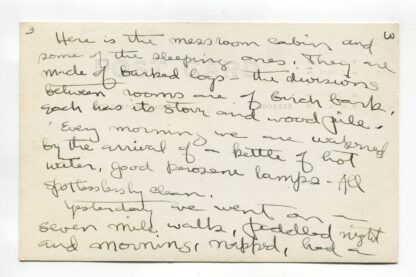 3 W
Here is the messroom cabin and
some of the sleeping ones. They are
made of barked logs - the divisions
between rooms are of birch bark,
each has its stove and wood pile.
Every morning we are wakened
by the arrival of a kettle of hot
water, good kerosene lamps - All
spotlessly clean.
Yesterday we went on a
seven mile walk, paddled night
and morning, napped, had a